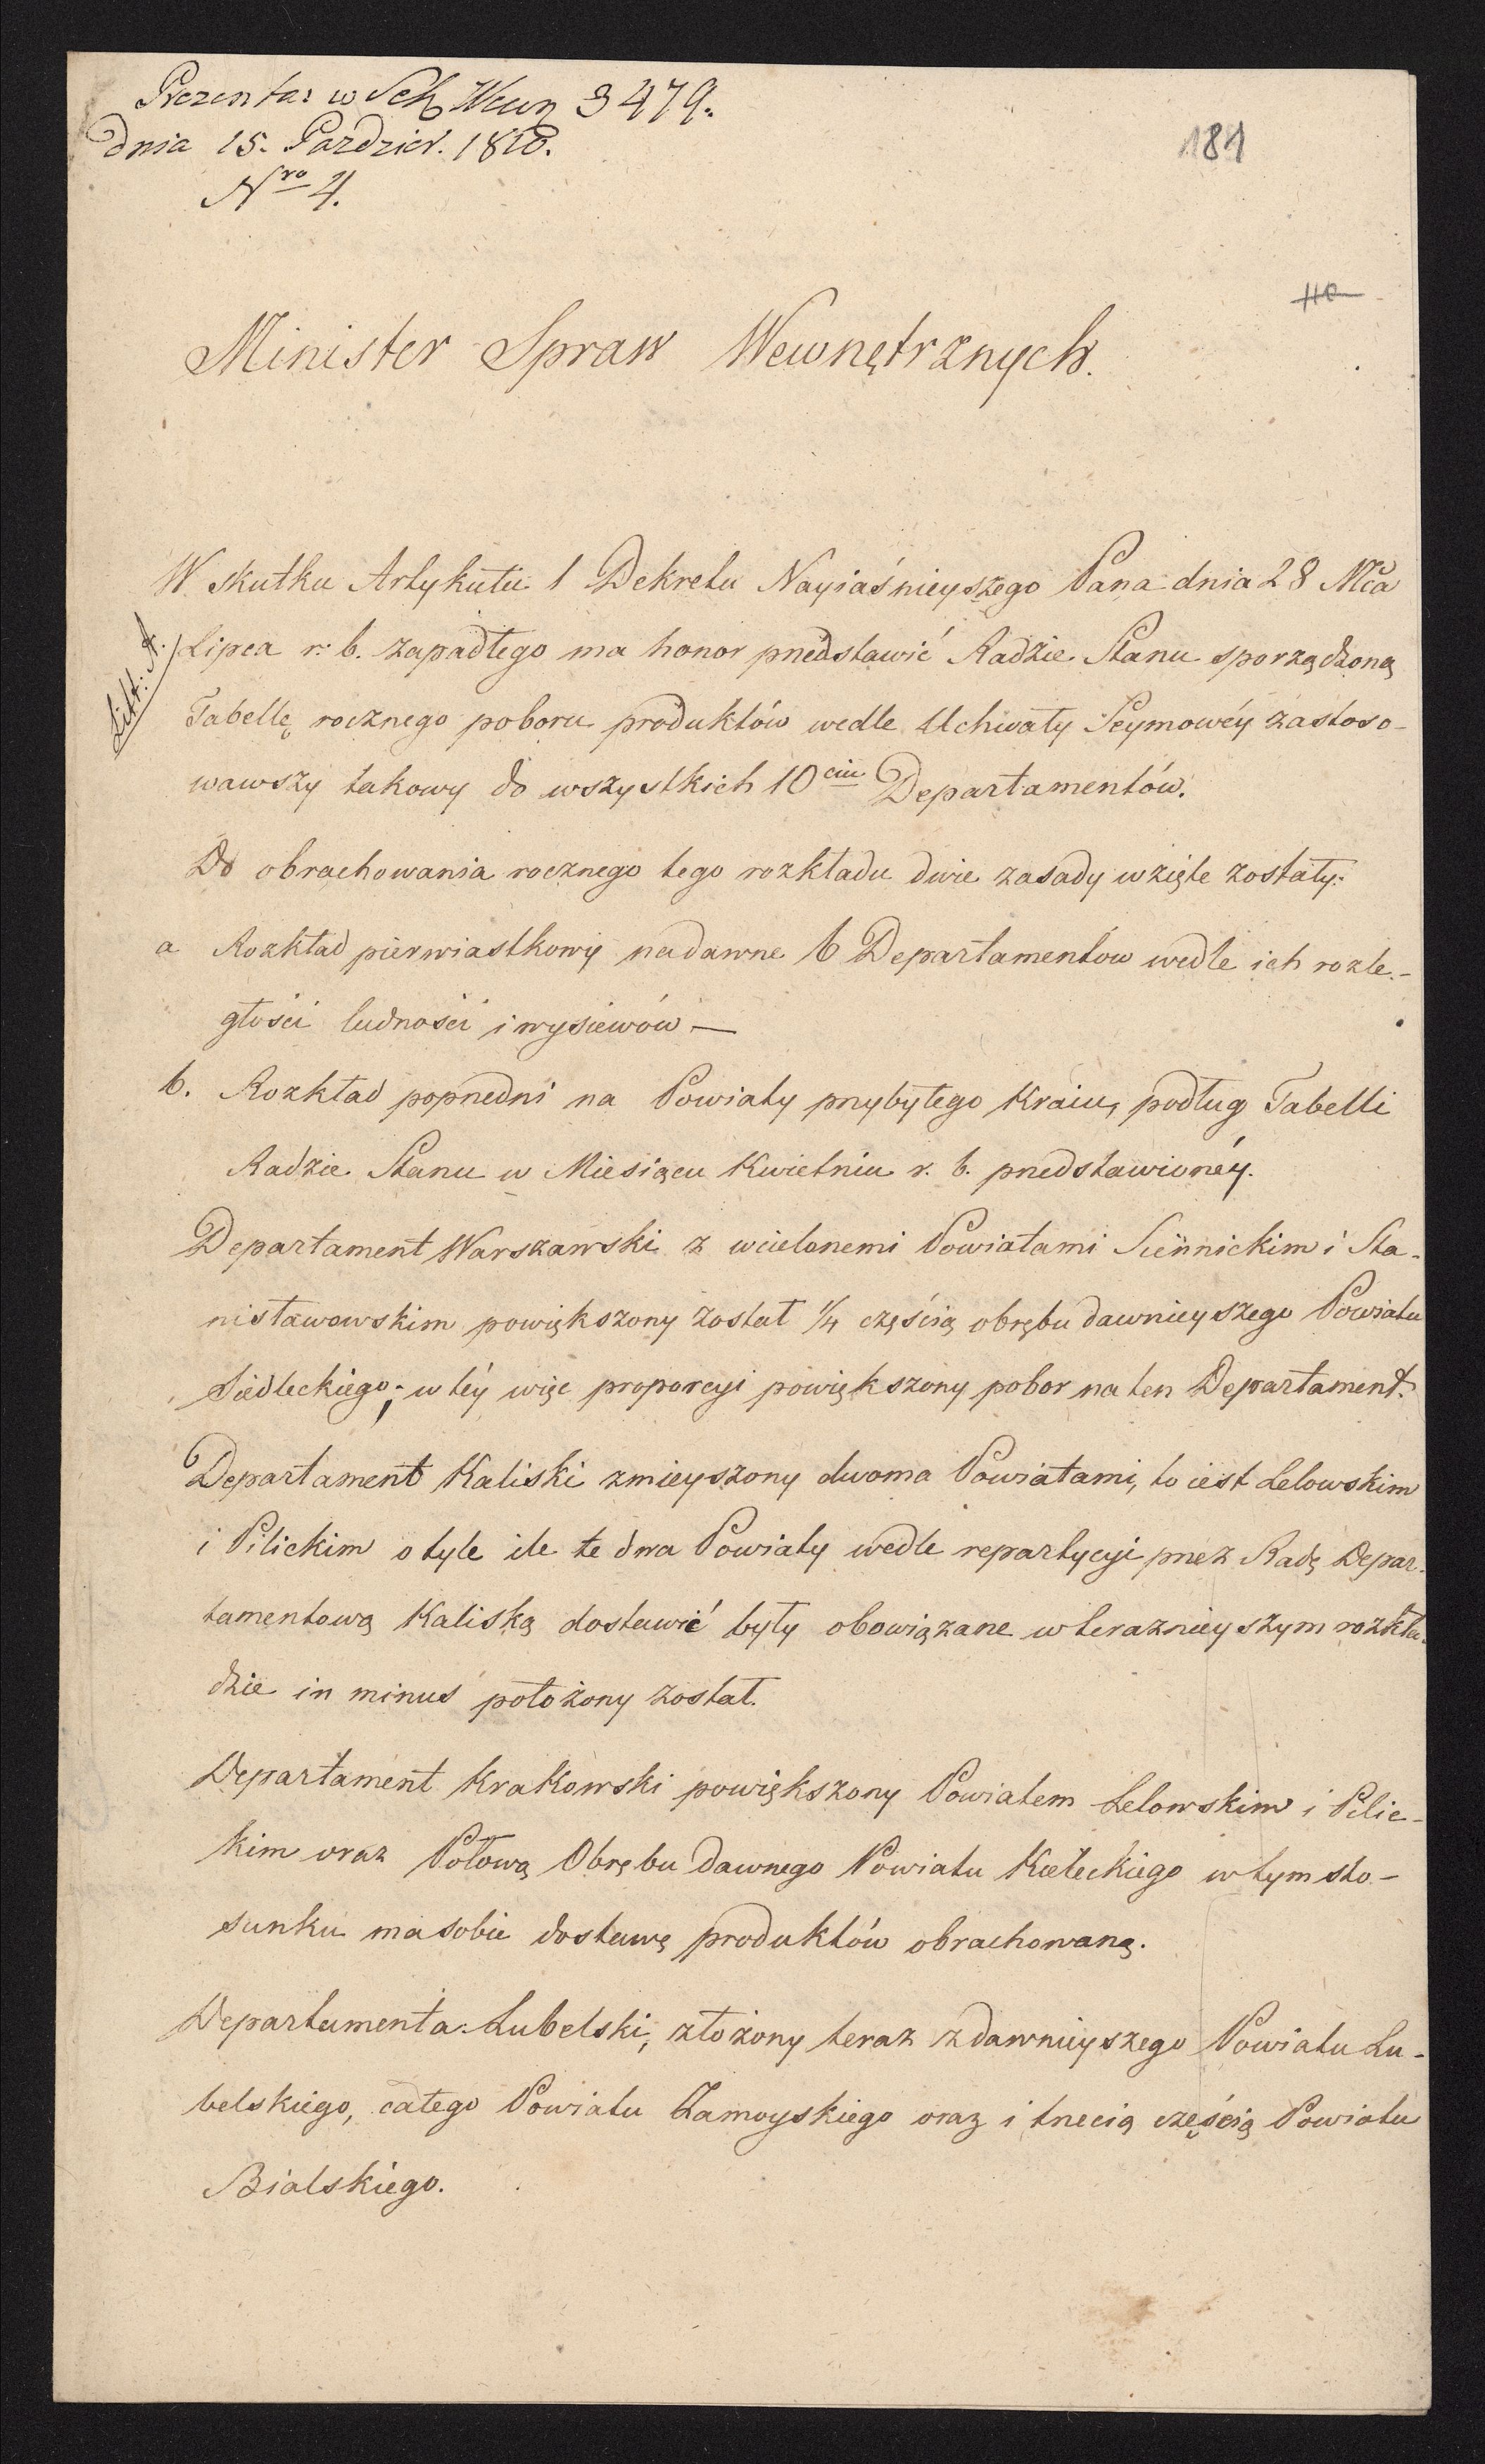 Prezenta: w Sek Wewn 3479.
dnia 15. Pazdzier. 1810.
Nro 4.
181
110
Minister Spraw Wewnętrznych.
W skutku Artykułu 1 Dekretu Nayiaśnieyszego Pana dnia 28 Mca
Litt: A.
Lipca r. b. zapadłego ma honor przedstawić Radzie Stanu sporządzoną
Tabellę rocznego poboru produktów wedle Uchwały Seymowéy zastoso-
wawszy takowy do wszystkich 10ciu Departamentów.
Do obrachowania rocznego tego rozkładu dwie zasady wzięte zostały:
a Rozkład pierwiastkowy na dawne 6 Departamentów wedle ich rozle-
głości ludności i wysiewów —
b. Rozkład poprzedni na Powiaty przybyłego Kraiu, podług Tabelli
Radzie Stanu w Miesiącu Kwietniu r. b. przedstawionéy.
Departament Warszawski z wcielonemi Powiatami Siennickim i Sta-
nisławowskim powiększony został 1/4 częścią obrębu dawnieyszego Powiatu
Siedleckiego; w téy więc proporcyi powiększony pobor na ten Departament.
Departament Kaliski zmieyszony dwoma Powiatami, to iest Lelowskim
i Pilickim o tyle ile te dwa Powiaty wedle repartycyi przez Radę Depar-
tamentową Kaliską dostawić były obowiązane w teraznieyszym rozkła-
dzie in minus położony został.
Departament Krakowski powiększony Powiatem Lelowskim i Pilic-
kim oraz Połową Obrębu dawnego Powiatu Kieleckiego w tym sto-
sunku ma sobie dostawę produktów obrachowaną.
Departamenta Lubelski, złożony teraz z dawnieyszego Powiatu Lu-
belskiego, całego Powiatu Zamoyskiego oraz i trzecią częścią Powiatu
Bialskiego.